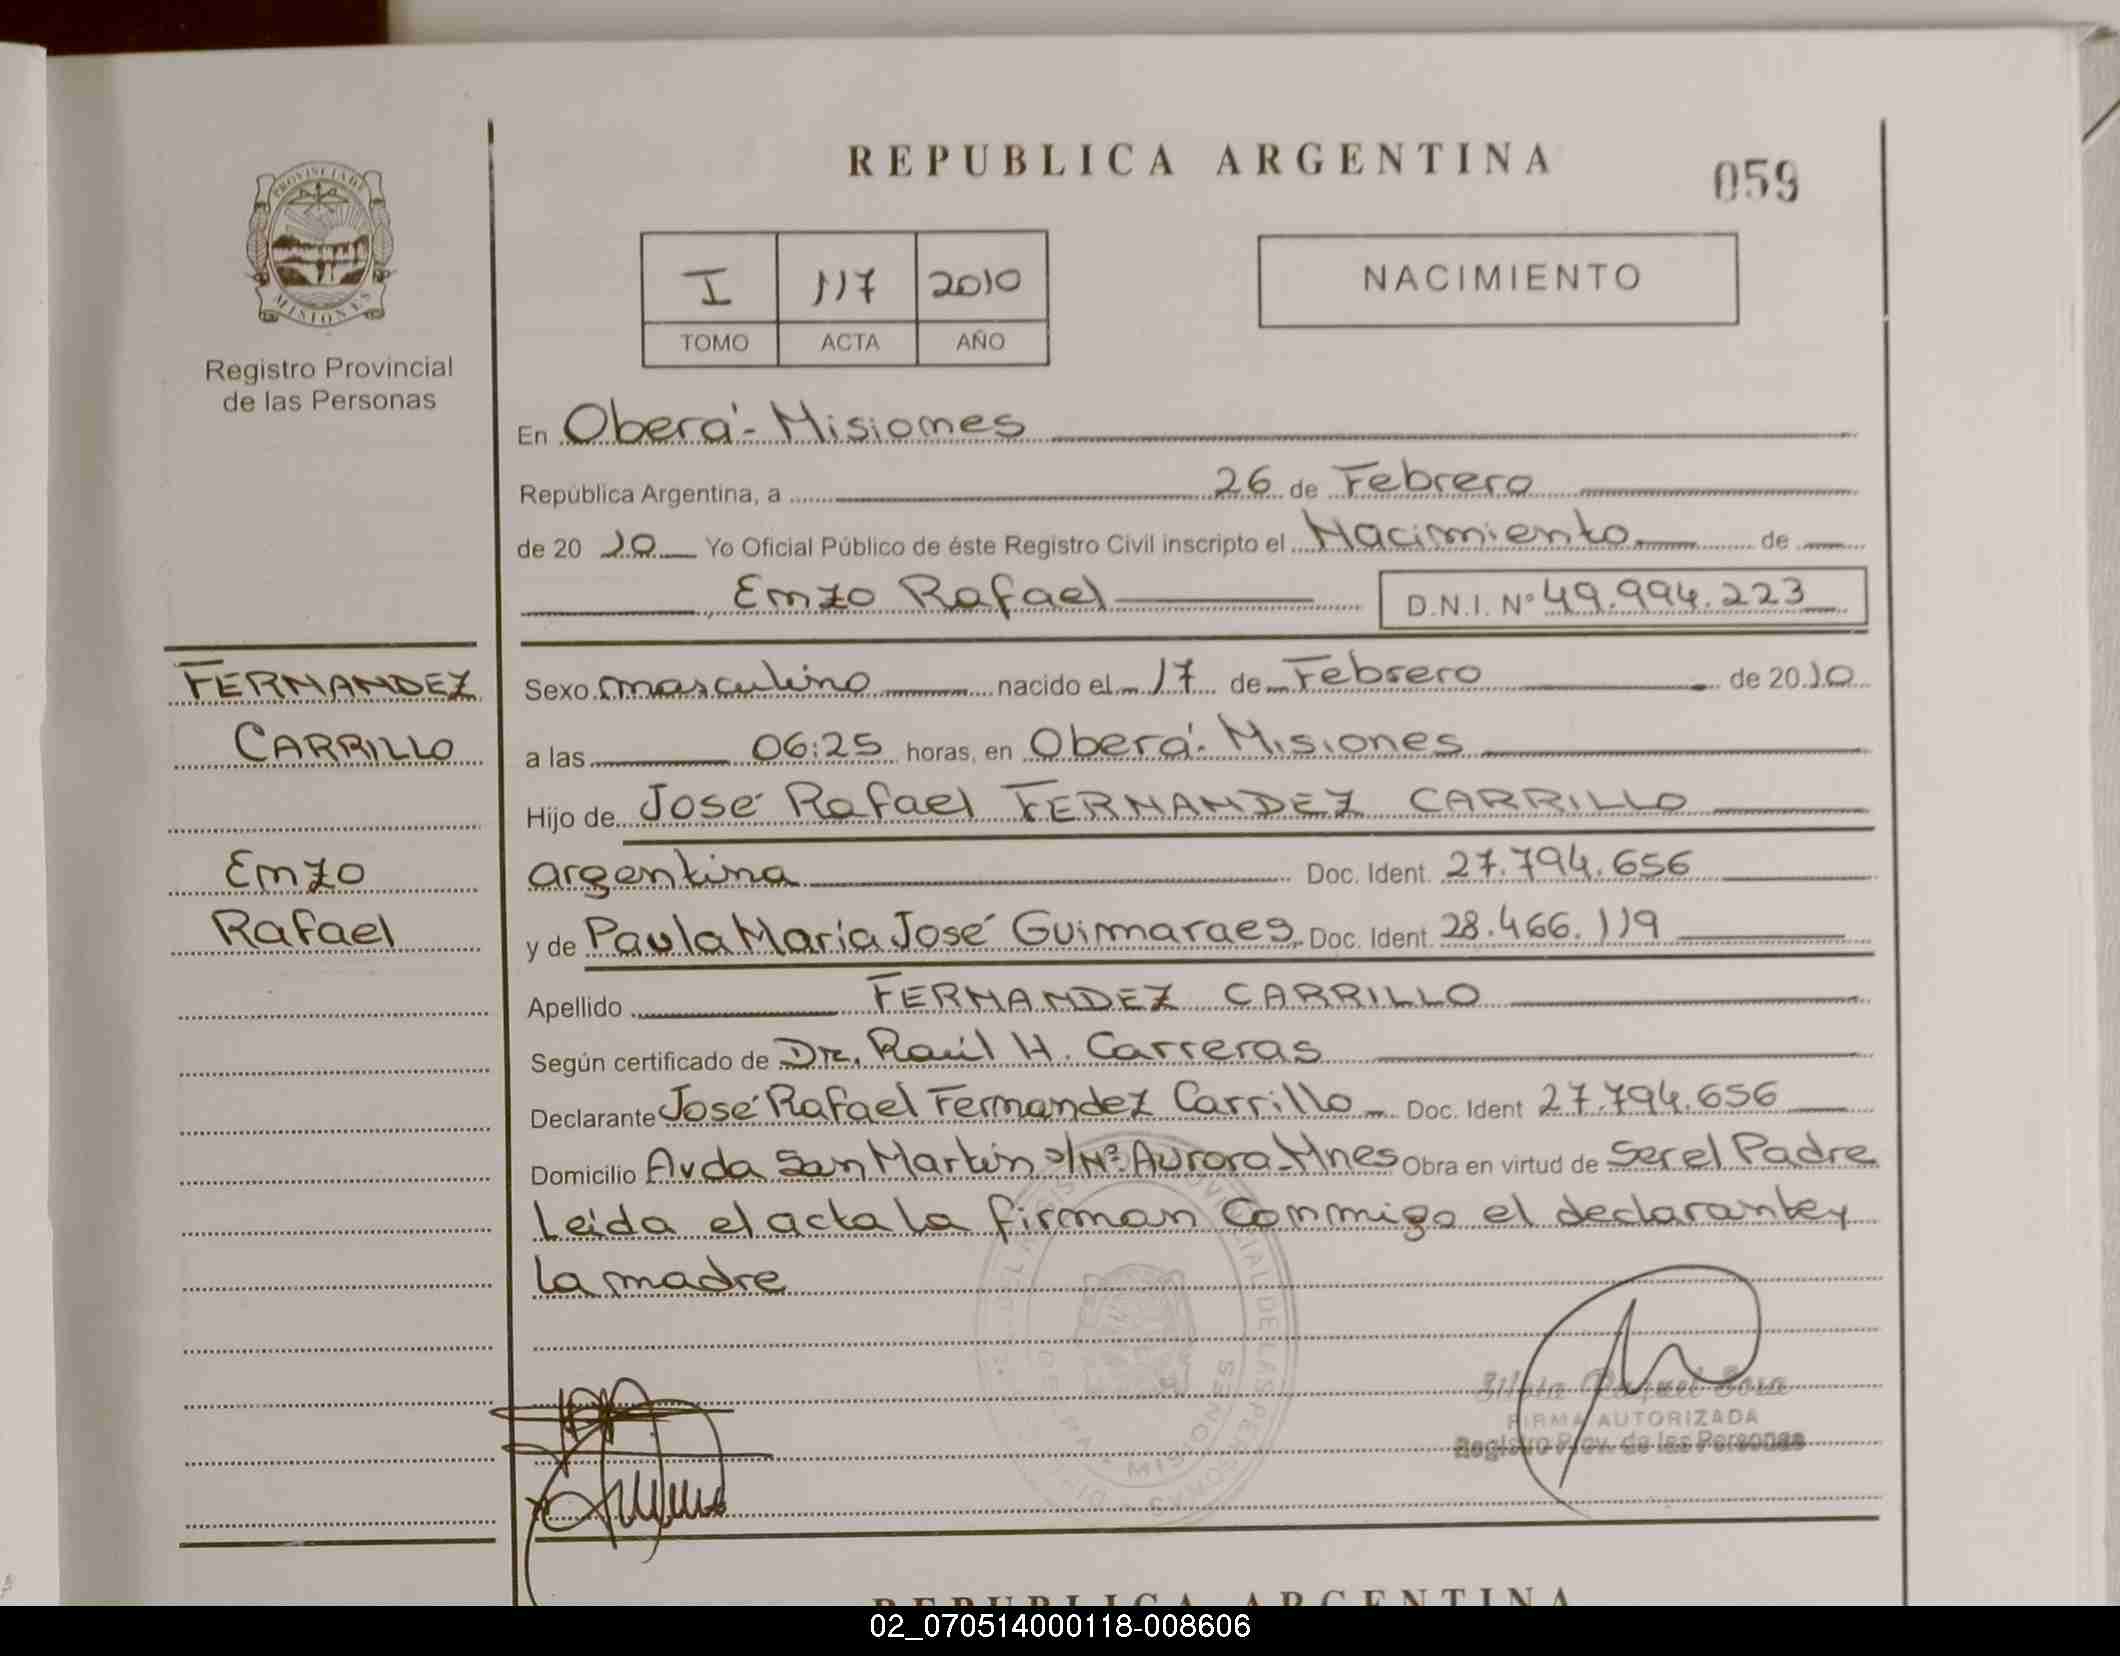 REPUBLICA ARGENTINA
059
PROVINCIA DE
MISIONES
Registro Provincial
de las Personas
I 117 2010
TOMO ACTA AÑO
NACIMIENTO
En Oberá - Misiones
República Argentina, a 26 de Febrero
de 20 10 Yo Oficial Público de éste Registro Civil inscripto el Nacimiento de
Enzo Rafael D.N.I. Nº 49.994.223
FERNANDEZ
CARRILLO
Enzo
Rafael
Sexo masculino nacido el 17 de Febrero de 2010
a las 06:25 horas, en Oberá - Misiones
Hijo de José Rafael FERNANDEZ CARRILLO
argentina Doc. Ident. 27.794.656
y de Paula María José Guimaraes Doc. Ident. 28.466.119
Apellido FERNANDEZ CARRILLO
Según certificado de Dr. Raúl H. Carreras
Declarante José Rafael Fernandez Carrillo Doc. Ident 27.794.656
Domicilio Avda San Martin s/Nº Aurora - Mnes Obra en virtud de Ser el Padre
Leida el acta la firman conmigo el declarante y
la madre
FIRMA AUTORIZADA
Registro Prov. de las Personas
REPUBLICA ARGENTINA
02_070514000118-008606